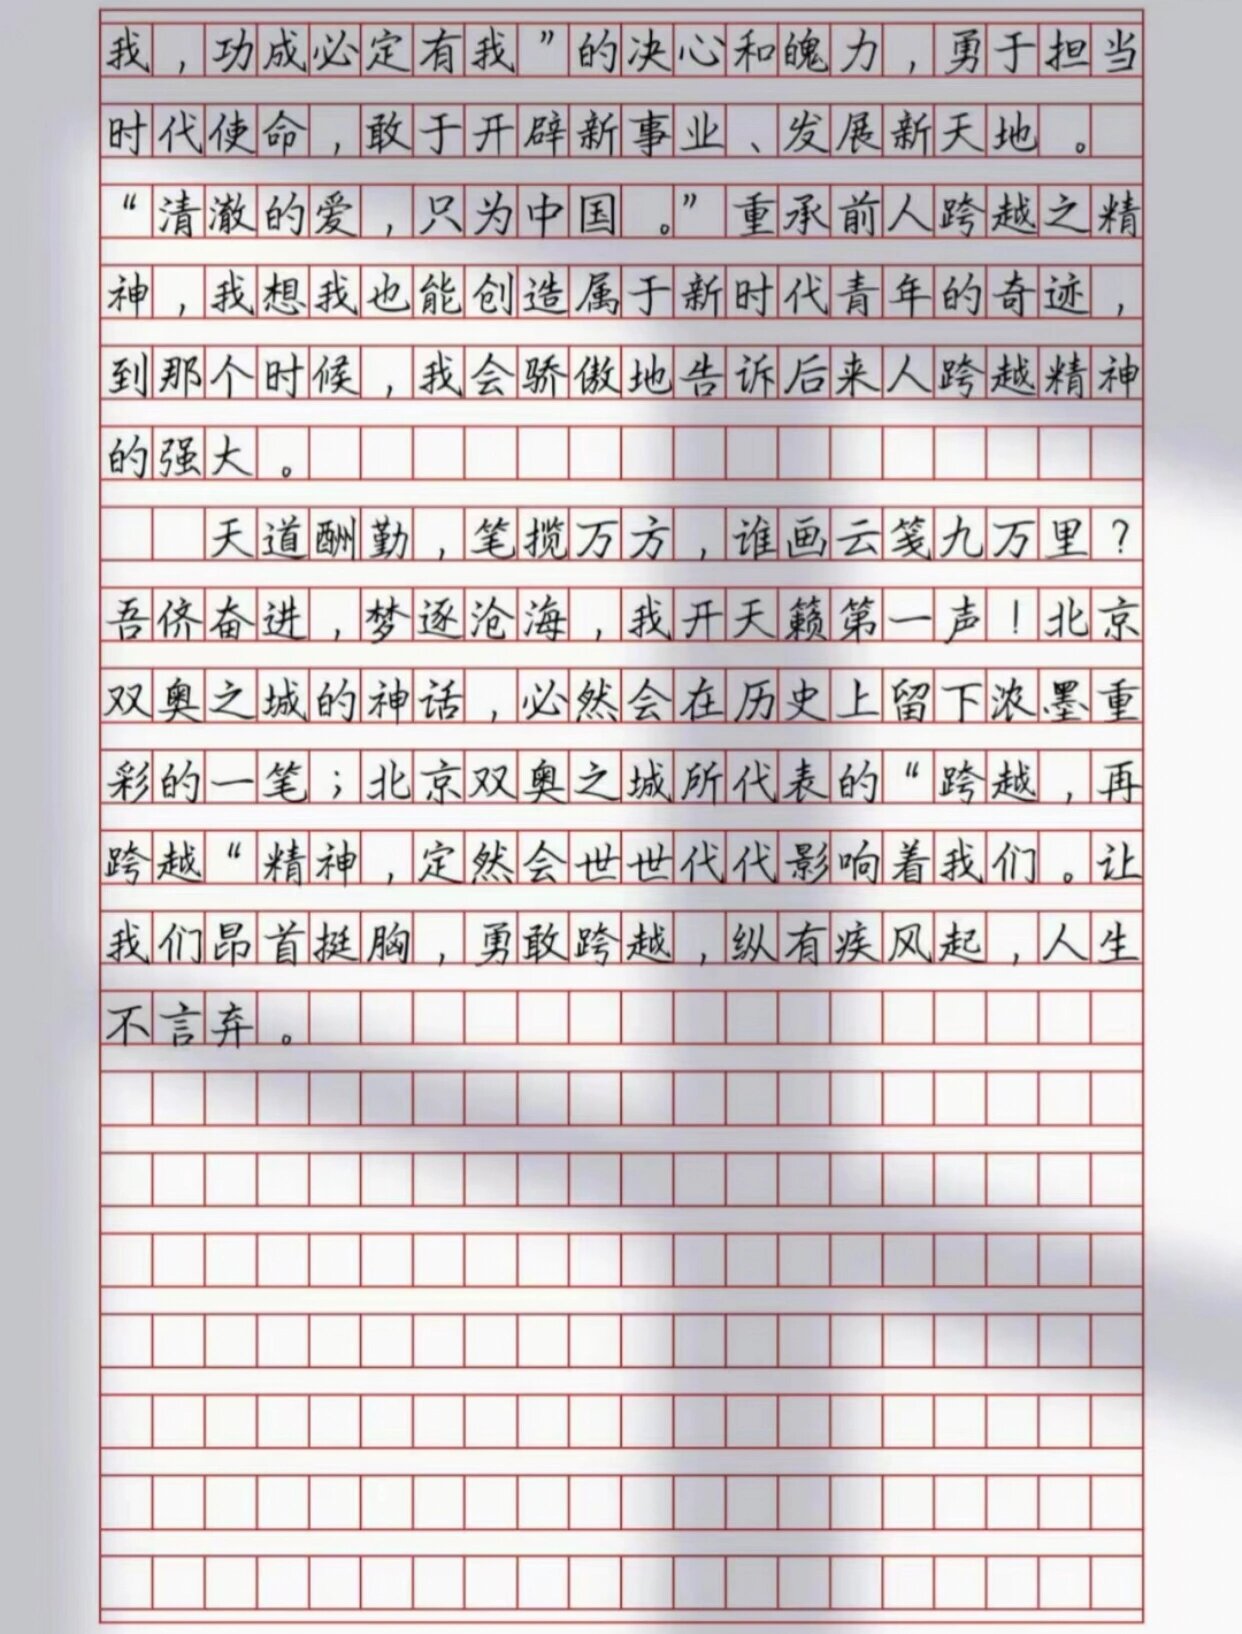 我，功成必定有我”的决心和魄力，勇于担当
时代使命，敢于开辟新事业、发展新天地。
“清澈的爱，只为中国。”重承前人跨越之精
神，我想我也能创造属于新时代青年的奇迹，
到那个时候，我会骄傲地告诉后来人跨越精神
的强大。
天道酬勤，笔揽万方，谁画云笺九万里？
吾侪奋进，梦逐沧海，我开天籁第一声！北京
双奥之城的神话，必然会在历史上留下浓墨重
彩的一笔；北京双奥之城所代表的“跨越，再
跨越“精神，定然会世世代代影响着我们。让
我们昂首挺胸，勇敢跨越，纵有疾风起，人生
不言弃。